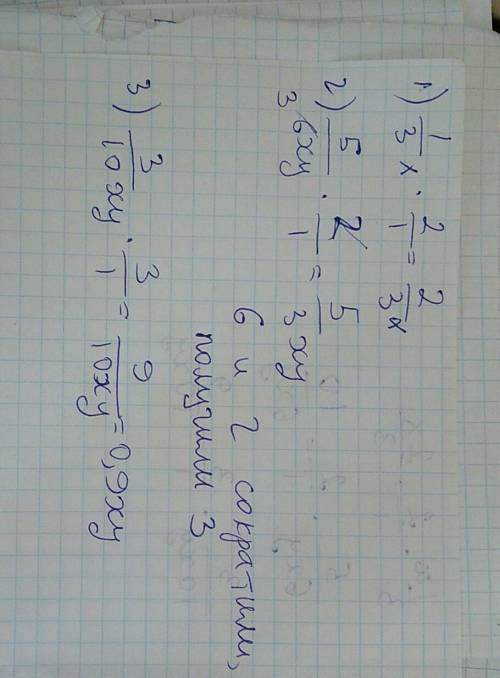 1) 1/3x · 2/1 = 2/3x
2) 5/6xy · 2/1 = 5/3xy
3
6 и 2 сократили,
получили 3
3) 3/10xy · 3/1 = 9/10xy = 0,9xy